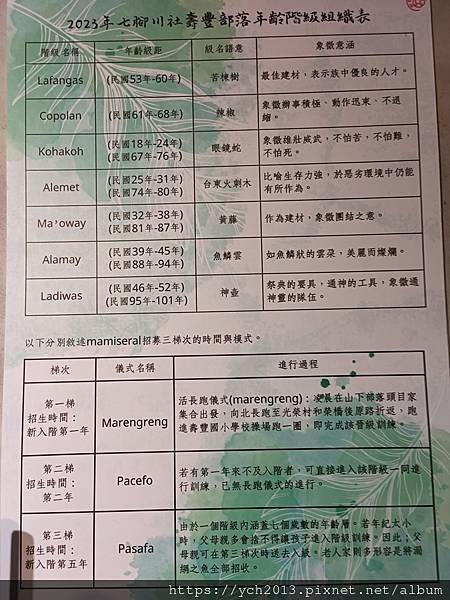 2023年七腳川社壽豐部落年齡階級組織表
階級名稱 年齡級距 級名語意 象徵意涵
Lafangas (民國53年-60年) 苦楝樹 最佳建材，表示族中優良的人才。
Copolan (民國61年-68年) 辣椒 象徵辦事積極、動作迅速、不退
縮。
Kohakoh (民國18年-24年) 眼鏡蛇 象徵雄壯威武，不怕苦，不怕難，
(民國67年-76年) 不怕死。
Alemet (民國25年-31年) 台東火刺木 比喻生存力強，於惡劣環境中仍能
(民國74年-80年) 有所作為。
Ma'oway (民國32年-38年) 黃藤 作為建材，象徵團結之意。
(民國81年-87年)
Alamay (民國39年-45年) 魚鱗雲 如魚鱗狀的雲朵，美麗而燦爛。
(民國88年-94年)
Ladiwas (民國46年-52年) 神壺 祭典的要具，通神的工具，象徵通
(民國95年-101年) 神靈的隊伍。
以下分別敘述mamiseral招募三梯次的時間與模式。
梯次 儀式名稱 進行過程
第一梯
招生時間：
新入階第一年
Marengreng
活長跑儀式(marengreng)：凌晨在山下部落頭目家
集合出發，向北長跑至光榮村和榮橋後原路折返，跑
進壽豐國小學校操場跑一圈，即完成該晉級訓練。
第二梯
招生時間：
第二年
Pacefo
若有第一年來不及入階者，可直接進入該階級一同進
行訓練，已無長跑儀式的進行。
第三梯
招生時間：
新入階第五年
Pasafa
由於一個階級內涵蓋七個歲數的年齡層。若年紀太小
時，父母親多會捨不得讓孩子進入階級訓練。因此，父
母親可在第三梯次時送去入級。老人家則多形容是將漏
網之魚全部招收。
https://ych2013.pixnet.net/album